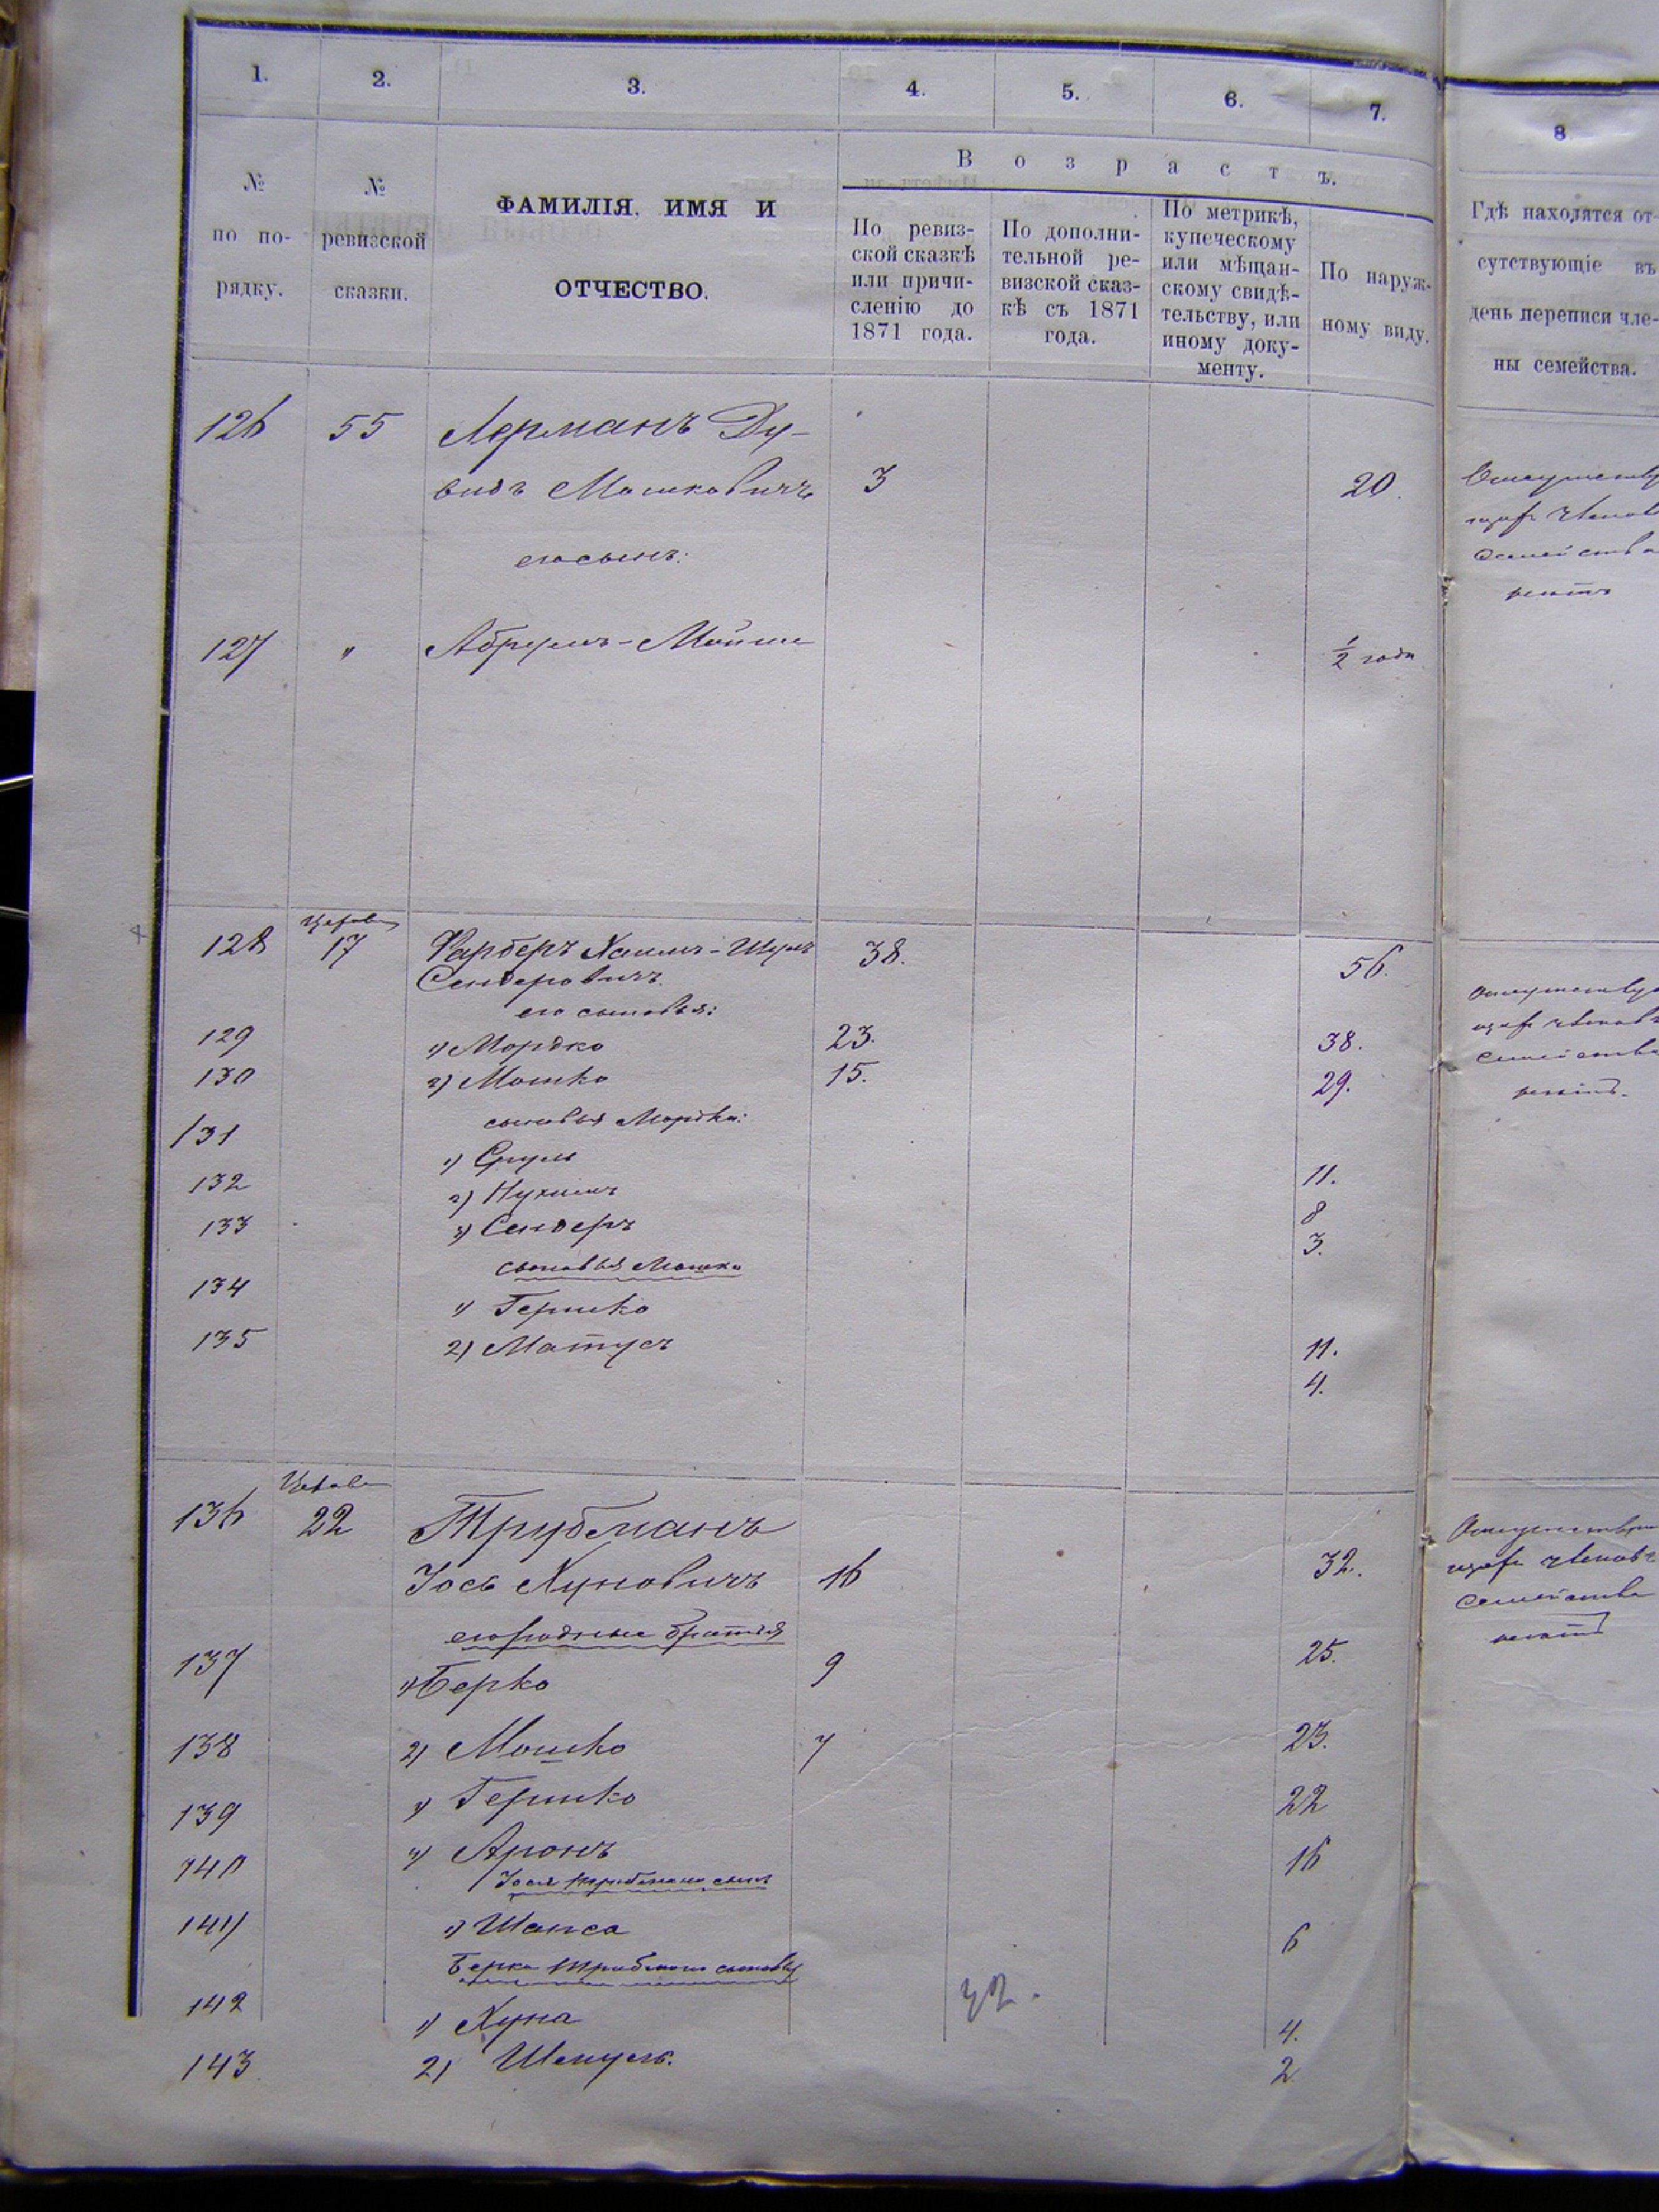 1. 2. 3. 4. 5. 6. 7. 8.
Возрастъ.
№ по порядку.
№ ревизской сказки.
ФАМИЛІЯ, ИМЯ И
ОТЧЕСТВО.
По ревиз-
ской сказкѣ
или причи-
сленію до
1871 года.
По дополни-
тельной ре-
визской сказ-
кѣ съ 1871
года.
По метрикѣ,
купеческому
или мѣщан-
скому свидѣ-
тельству, или
иному доку-
менту.
По наруж-
ному виду.
Гдѣ находятся от-
сутствующіе въ
день переписи чле-
ны семейства.
126 55 Лерманъ Ду-
видъ Мошковичъ 3 20.
его сынъ:
127 " Абрумъ-Мойше ½ года
Отсутству
членов
семейства
нѣтъ
128 17 Фарберъ Хаимъ-Шулъ 38. 56.
Сендеровичъ
его сыновья:
129 1) Мордко 23. 38.
130 2) Мошко 15. 29.
сыновья Мордка:
131 1) Сруль 11.
132 2) Нухимъ 8
133 3) Сендеръ 3.
сыновья Мошка
134 1) Гершко 11.
135 2) Матусъ 4.
членовъ
семейства
нѣтъ.
136 22 Трубманъ
Іось Хуновичъ 16 32.
его родные братья
137 1) Берко 9 25.
138 2) Мошко 7 23.
139 3) Гершко 22
140 4) Аронъ 16
Іося Трубмана сынъ
141 1) Шапса 6
Берка Трубмана сыновья
142 1) Хуна 4.
143 2) Шмуль. 2
членовъ
семейства
нѣтъ